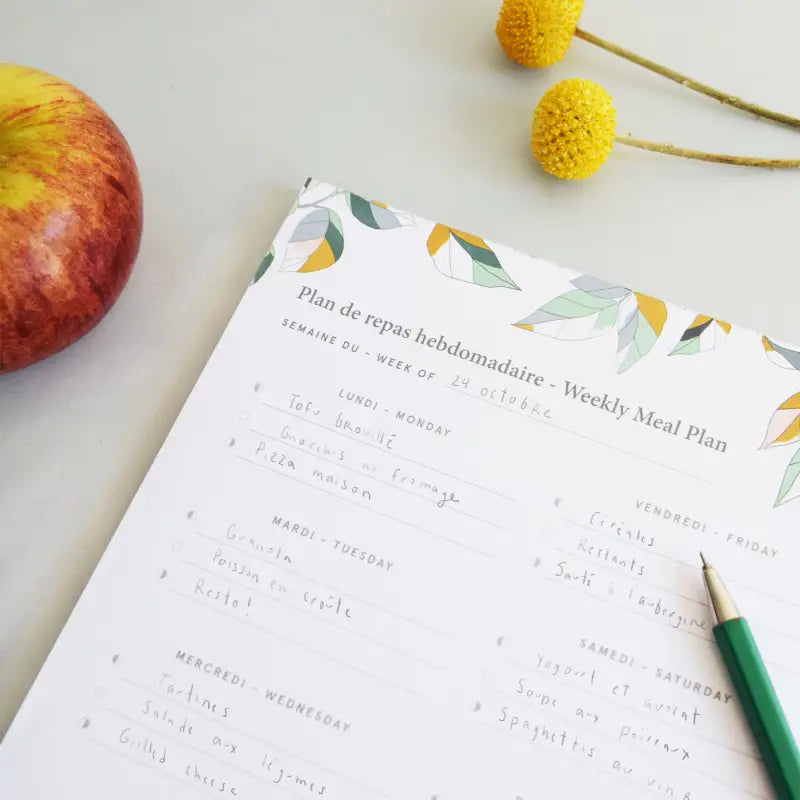 Plan de repas hebdomadaire - Weekly Meal Plan
SEMAINE DU - WEEK OF 24 octobre
LUNDI - MONDAY
Tofu brouillé
Gnocchis au fromage
Pizza maison
MARDI - TUESDAY
Granola
Poisson en croûte
Resto!
MERCREDI - WEDNESDAY
Tartines
Salade aux légumes
Grilled cheese
VENDREDI - FRIDAY
Céréales
Restants
Sauté à l'aubergine
SAMEDI - SATURDAY
Yogourt et avocat
Soupe aux poireaux
Spaghettis au vin